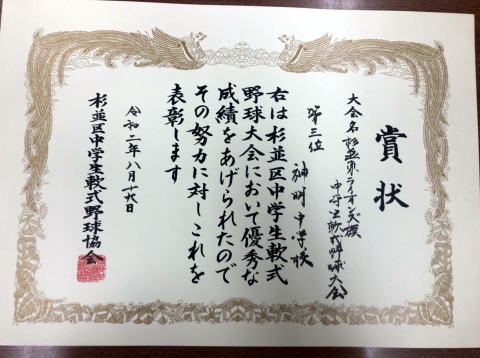 賞状
大会名 杉並東ライオンズ旗
中学生軟式野球大会
第三位
神明中学校
右は杉並区中学生軟式
野球大会において優秀な
成績をあげられたので
その努力に対しこれを
表彰します
令和二年八月十六日
杉並区中学生軟式野球協会